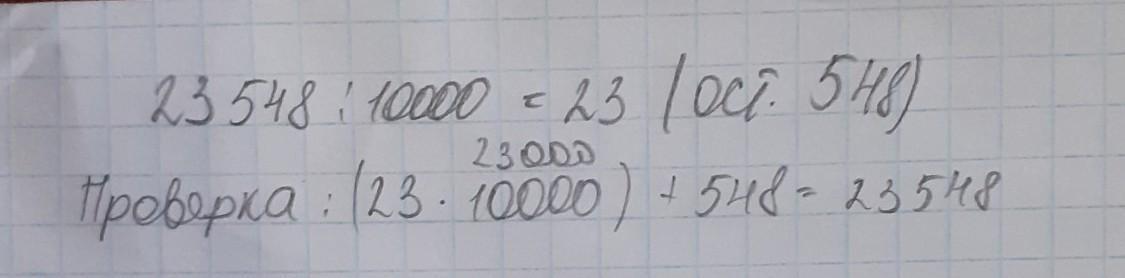 23 548 : 10000 = 23 (ост. 548)
23000
Проверка : (23 · 10000) + 548 = 23548